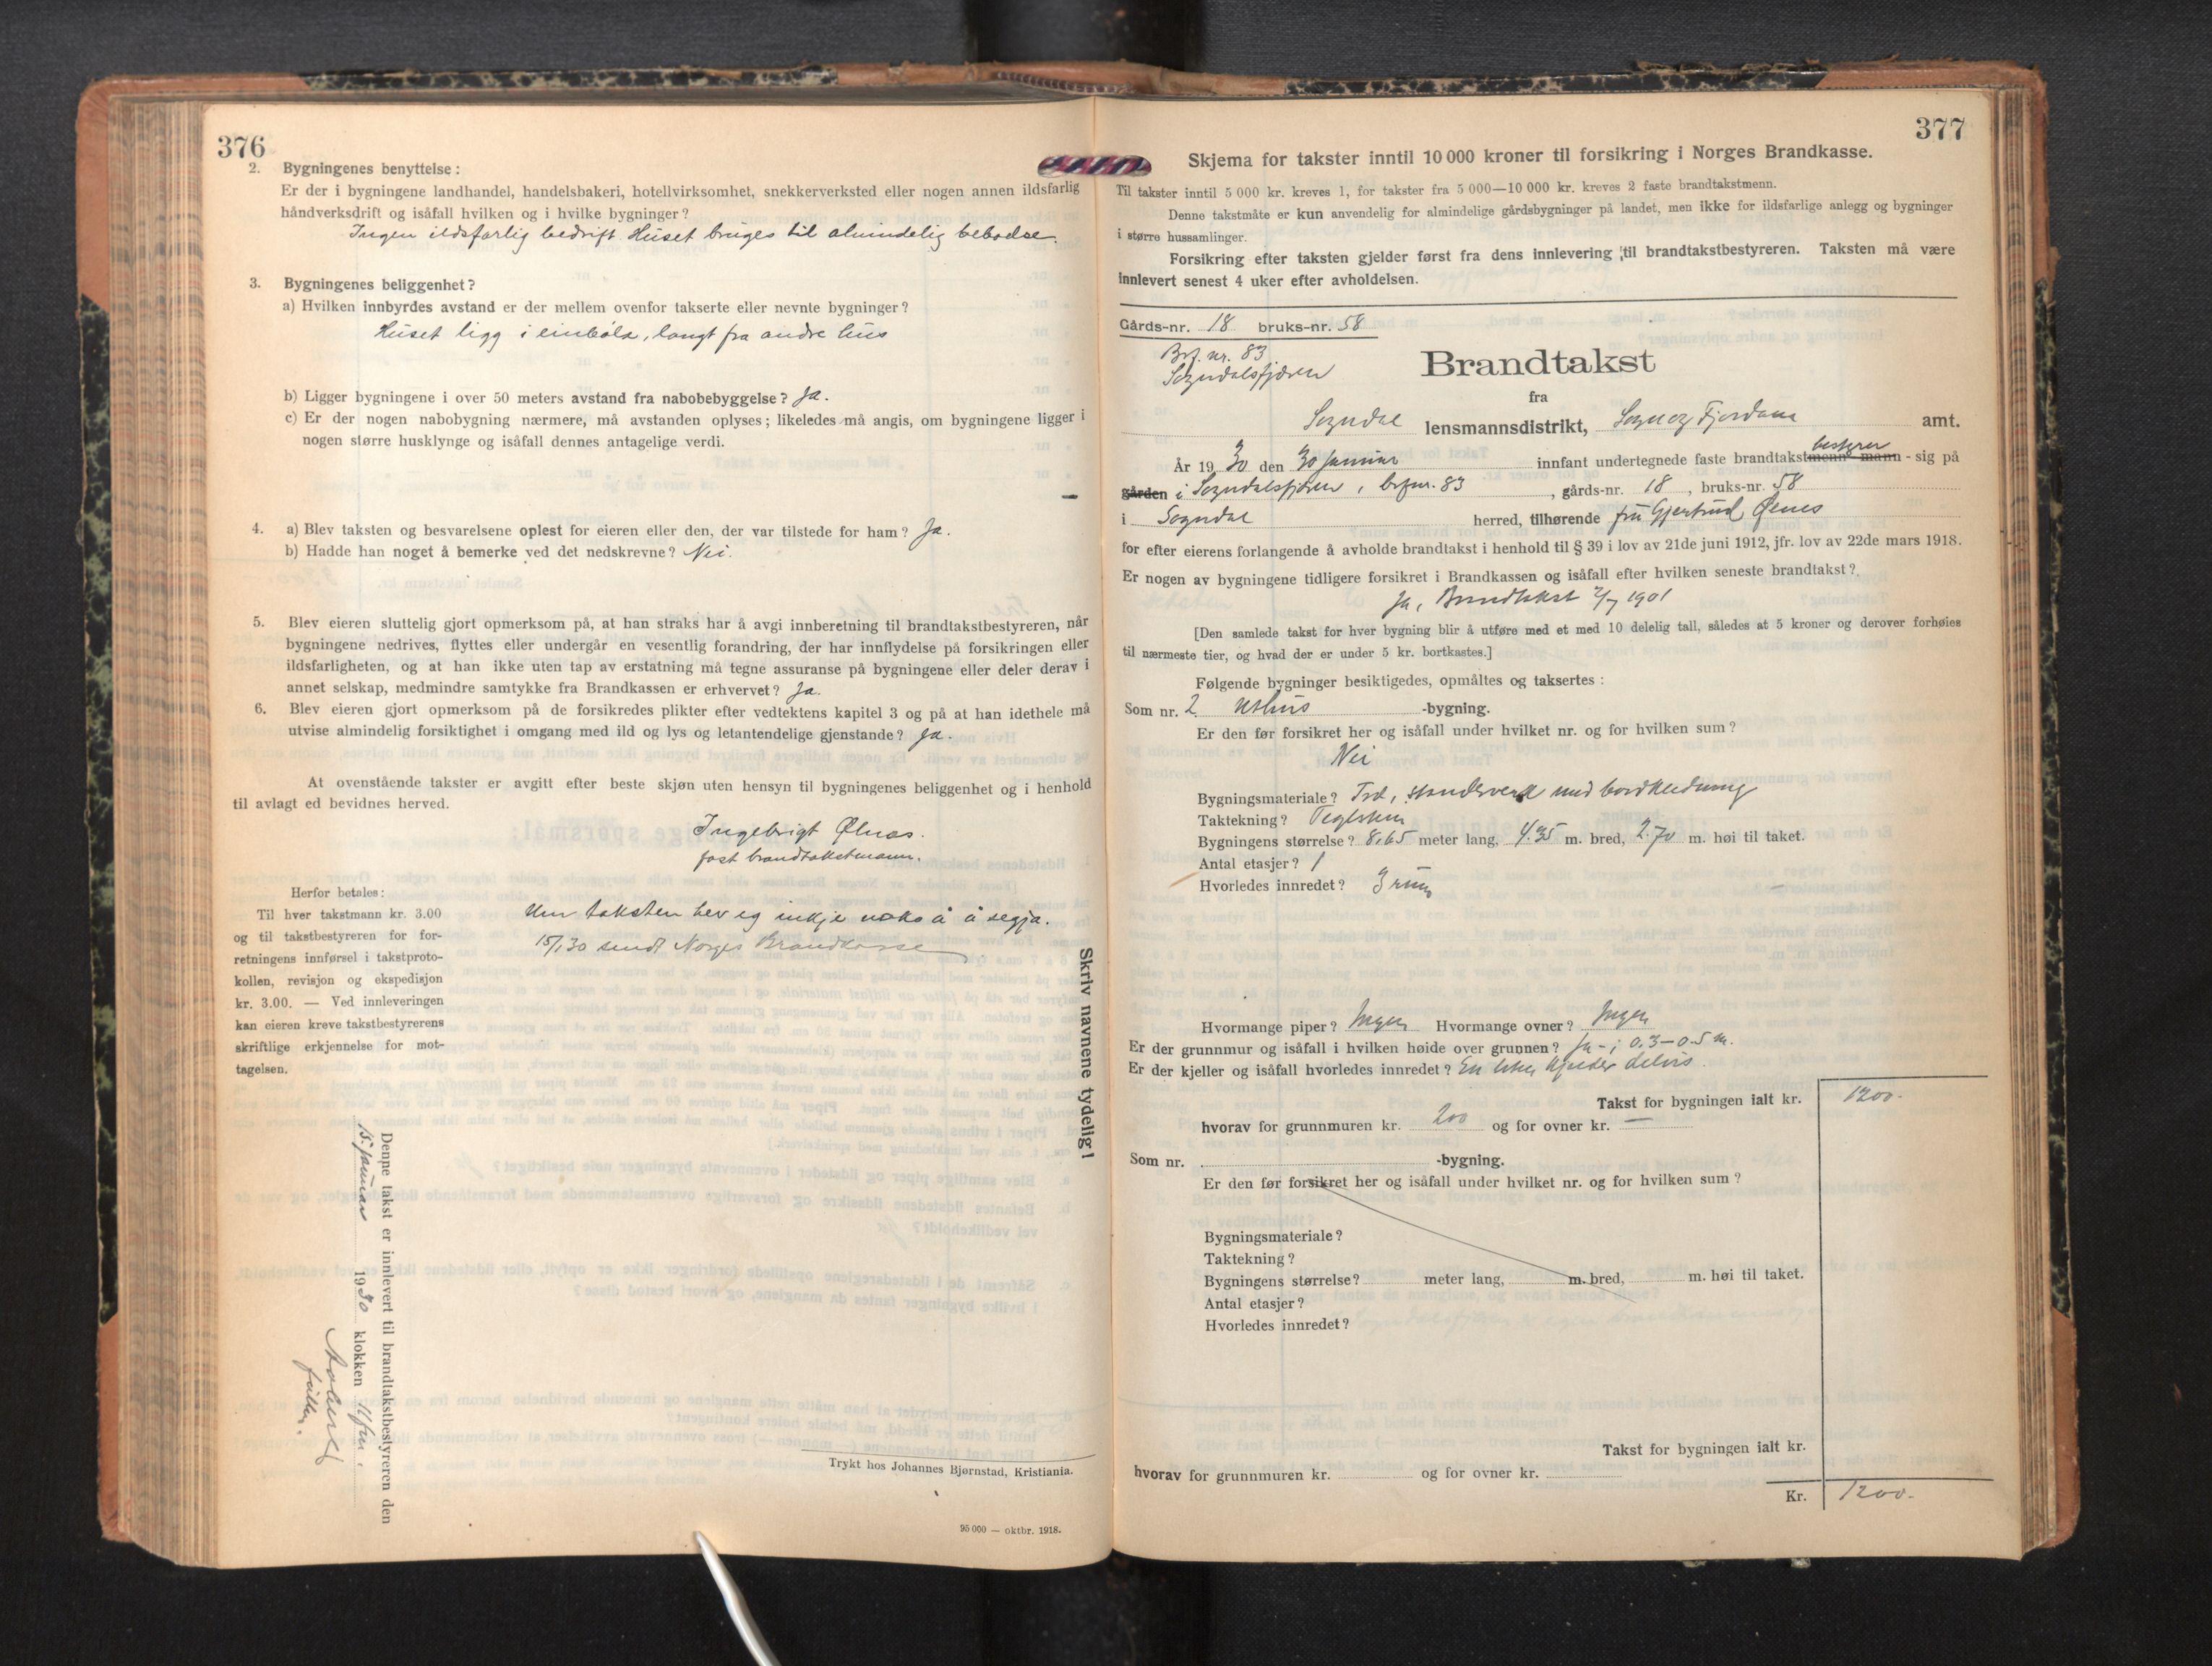 376
2. Bygningenes benyttelse:
Er der i bygningene landhandel, handelsbakeri, hotellvirksomhet, snekkerverksted eller nogen annen ildsfarlig
håndverksdrift og isåfall hvilken og i hvilke bygninger?
Ingen ildsfarlig bedrift. Huset bruges til almindelig beboelse.
3. Bygningenes beliggenhet?
a) Hvilken innbyrdes avstand er der mellem ovenfor takserte eller nevnte bygninger?
Huset ligg i einbøla, langt fra andre hus
b) Ligger bygningene i over 50 meters avstand fra nabobebyggelse? Ja.
c) Er der nogen nabobygning nærmere, må avstanden oplyses; likeledes må angis, om bygningene ligger i
nogen større husklynge og isåfall dennes antagelige verdi.
4. a) Blev taksten og besvarelsene oplest for eieren eller den, der var tilstede for ham? Ja.
b) Hadde han noget å bemerke ved det nedskrevne? Nei.
5. Blev eieren sluttelig gjort opmerksom på, at han straks har å avgi innberetning til brandtakstbestyreren, når
bygningene nedrives, flyttes eller undergår en vesentlig forandring, der har innflydelse på forsikringen eller
ildsfarligheten, og at han ikke uten tap av erstatning må tegne assuranse på bygningene eller deler derav i
annet selskap, medmindre samtykke fra Brandkassen er erhvervet? Ja.
6. Blev eieren gjort opmerksom på de forsikredes plikter efter vedtektens kapitel 3 og på at han idethele må
utvise almindelig forsiktighet i omgang med ild og lys og letantendelige gjenstande? Ja.
At ovenstående takster er avgitt efter beste skjøn uten hensyn til bygningenes beliggenhet og i henhold
til avlagt ed bevidnes herved.
Ingebrigt Ølnes.
fast brandtakstmann.
Herfor betales:
Til hver takstmann kr. 3.00
og til takstbestyreren for for-
retningens innførsel i takstproto-
kollen, revisjon og ekspedisjon
kr. 3.00. — Ved innleveringen
kan eieren kreve takstbestyrerens
skriftlige erkjennelse for mot-
tagelsen.
Um taksten hev eg inkje noko å å segja.
15/1 30 sendt Norges Brandkasse
Skriv navnene tydelig!
Denne takst er innlevert til brandtakstbestyreren den
15. januar 1930 klokken
Trykt hos Johannes Bjørnstad, Kristiania.
95 000 — oktbr. 1918.
377
Skjema for takster inntil 10 000 kroner til forsikring i Norges Brandkasse.
Til takster inntil 5 000 kr. kreves 1, for takster fra 5 000—10 000 kr. kreves 2 faste brandtakstmenn.
Denne takstmåte er kun anvendelig for almindelige gårdsbygninger på landet, men ikke for ildsfarlige anlegg og bygninger
i større hussamlinger.
Forsikring efter taksten gjelder først fra dens innlevering til brandtakstbestyreren. Taksten må være
innlevert senest 4 uker efter avholdelsen.
Gårds-nr. 18 bruks-nr. 58
Brf. nr. 83
Sogndalsfjøren
Brandtakst
fra
Sogndal lensmannsdistrikt, Sogn og Fjordane amt.
bestyrer
År 1930 den 30 januar innfant undertegnede faste brandtakstmenn mann - sig på
gården i Sogndalsfjøren, brfnr. 83, gårds-nr. 18, bruks-nr. 58
i Sogndal herred, tilhørende fru Gjertrud Ølnes
for efter eierens forlangende å avholde brandtakst i henhold til § 39 i lov av 21de juni 1912, jfr. lov av 22de mars 1918.
Er nogen av bygningene tidligere forsikret i Brandkassen og isåfall efter hvilken seneste brandtakst?
Ja, Brandtakst 2/7 1901
[Den samlede takst for hver bygning blir å utføre med et med 10 delelig tall, således at 5 kroner og derover forhøies
til nærmeste tier, og hvad der er under 5 kr. bortkastes.]
Følgende bygninger besiktigedes, opmåltes og taksertes:
Som nr. 2 Uthus -bygning.
Er den før forsikret her og isåfall under hvilket nr. og for hvilken sum?
Nei
Bygningsmateriale? Tre, standerverk med bordkledning
Taktekning? Teglsten
Bygningens størrelse? 8.65 meter lang, 4.35 m. bred, 2.70 m. høi til taket.
Antal etasjer? 1
Hvorledes innredet? 3 rum
Hvormange piper? Ingen Hvormange ovner? Ingen
Er der grunnmur og isåfall i hvilken høide over grunnen? Ja -; 0.3-0.5 m.
Er der kjeller og isåfall hvorledes innredet? En liten kjelder delvis.
Takst for bygningen ialt kr. 1200.-
hvorav for grunnmuren kr. 200 og for ovner kr. —
Som nr. -bygning.
Er den før forsikret her og isåfall under hvilket nr. og for hvilken sum?
Bygningsmateriale?
Taktekning?
Bygningens størrelse? meter lang, m. bred, m. høi til taket.
Antal etasjer?
Hvorledes innredet?
Takst for bygningen ialt kr.
hvorav for grunnmuren kr. og for ovner kr.
Kr. 1200.-